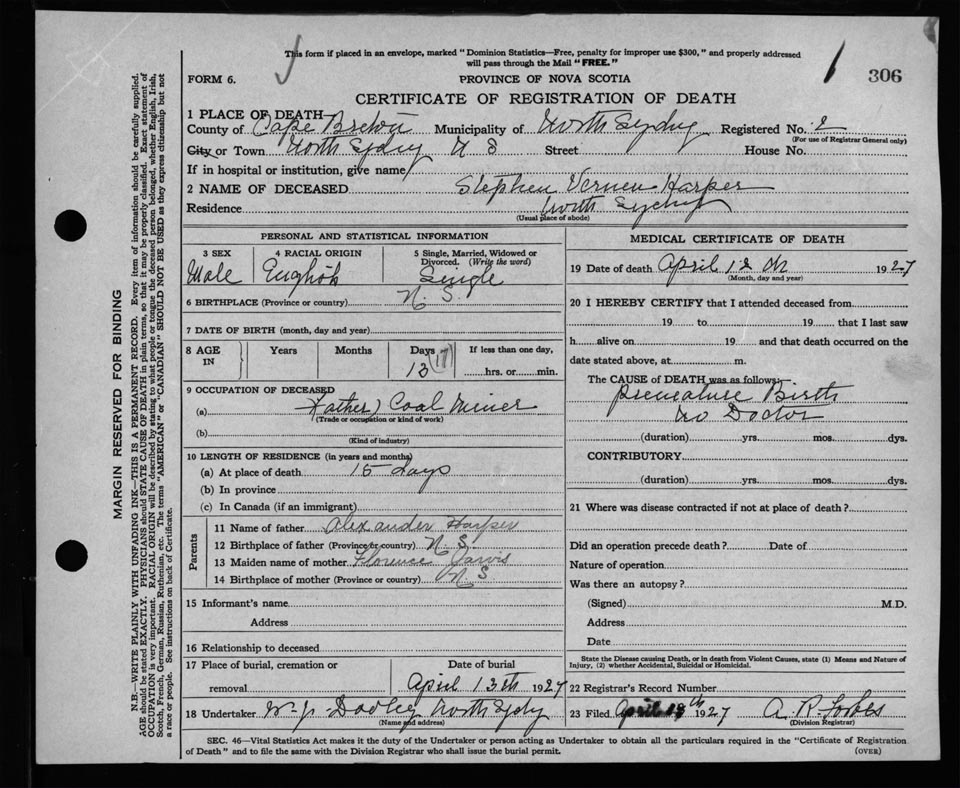 This form if placed in an envelope, marked "Dominion Statistics—Free, penalty for improper use $300," and properly addressed
will pass through the Mail "FREE."
FORM 6.
PROVINCE OF NOVA SCOTIA
306
CERTIFICATE OF REGISTRATION OF DEATH
1 PLACE OF DEATH
County of Cape Breton Municipality of North Sydney Registered No. 2
(For use of Registrar General only)
City or Town North Sydney N S Street House No.
If in hospital or institution, give name
2 NAME OF DECEASED Stephen Vernen Harper
Residence North Sydney
(Usual place of abode)
PERSONAL AND STATISTICAL INFORMATION
3 SEX Male
4 RACIAL ORIGIN English
5 Single, Married, Widowed or Divorced. (Write the word) Single
6 BIRTHPLACE (Province or country) N. S.
7 DATE OF BIRTH (month, day and year)
8 AGE IN Years Months Days 13 (17) If less than one day, hrs. or min.
9 OCCUPATION OF DECEASED
(a) (Father) Coal Miner
(Trade or occupation or kind of work)
(b)
(Kind of industry)
10 LENGTH OF RESIDENCE (in years and months)
(a) At place of death 15 days
(b) In province
(c) In Canada (if an immigrant)
Parents
11 Name of father Alexander Harper
12 Birthplace of father (Province or country) N. S.
13 Maiden name of mother Florence Jarvis
14 Birthplace of mother (Province or country) N S
15 Informant's name
Address
16 Relationship to deceased
17 Place of burial, cremation or removal
Date of burial
April 13th 1927
18 Undertaker W. J. Dooley North Sydney
(Name and address)
MEDICAL CERTIFICATE OF DEATH
19 Date of death April 12th 1927
(Month, day and year)
20 I HEREBY CERTIFY that I attended deceased from
19 to 19 that I last saw
h alive on 19 and that death occurred on the
date stated above, at m.
The CAUSE of DEATH was as follows:
Premature Birth
No Doctor
(duration) yrs. mos. dys.
CONTRIBUTORY
(duration) yrs. mos. dys.
21 Where was disease contracted if not at place of death?
Did an operation precede death? Date of
Nature of operation
Was there an autopsy?
(Signed) M.D.
Address
Date
State the Disease causing Death, or in death from Violent Causes, state (1) Means and Nature of
Injury, (2) whether Accidental, Suicidal or Homicidal.
22 Registrar's Record Number
23 Filed April 13th 1927 A. R. Forbes
(Division Registrar)
SEC. 46—Vital Statistics Act makes it the duty of the Undertaker or person acting as Undertaker to obtain all the particulars required in the "Certificate of Registration
of Death" and to file the same with the Division Registrar who shall issue the burial permit.
(OVER)
MARGIN RESERVED FOR BINDING
N.B.—WRITE PLAINLY WITH UNFADING INK—THIS IS A PERMANENT RECORD. Every item of information should be carefully supplied.
AGE should be stated EXACTLY. PHYSICIANS should STATE CAUSE OF DEATH in plain terms, so that it may be properly classified. Exact statement of
OCCUPATION is very important. RACIAL ORIGIN will be described by stating to what people or tongue the deceased person belonged, whether English, Irish,
Scotch, French, German, Russian, Ruthenian, etc. The terms "AMERICAN" or "CANADIAN" SHOULD NOT BE USED as they express citizenship but not
a race or people. See instructions on back of Certificate.